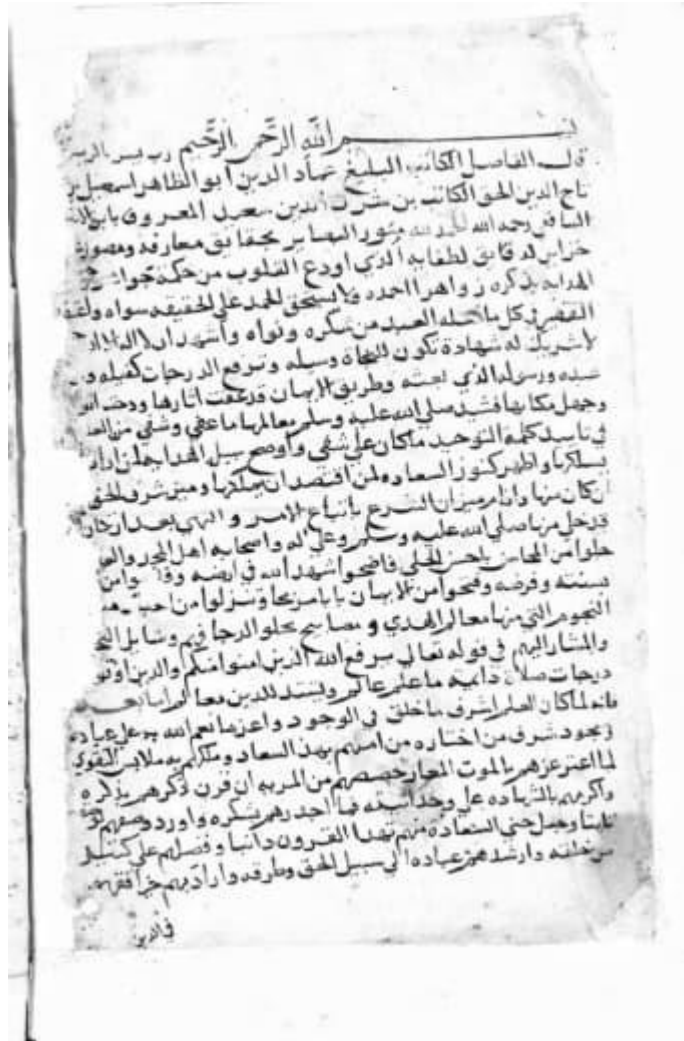 بسم الله الرحمن الرحيم رب يسر
قال الفاضل الكاتب البليغ عماد الدين ابو الطاهر اسمعيل بن
تاج الدين الحق الكاتب بن شرف الدين سعيد المعروف بابن
الشافعي رحمه الله الحمد لله منور البصاير بحقايق معارفه ومصور
خزاين لدقايق لطفايه الذي اودع القلوب من حكمه جواشر
الهدايه بذكره زواهرا احمده ولا يستحق الحمد على الحقيقه سواه
المقصر في كل ما العبد من شكره ونواه واشهد ان لا اله الا الله
لا شريك له شهادة تكون للنجاة وسيله وترفع الدرجات كفيله
عبده ورسوله الذي بعثه وطريق الايمان قد عفت اثارها
وجهل مكانها فشيد صلى الله عليه وسلم معالمها ما عفي وشفي من
في تاييد كلمة التوحيد ما كان على شفي واوضح سبيل الهدا لمن اراد
يسلكها واظهر كنوز السعاده لمن اقتصد ان يملكها وميز شرف الحق
ان كان منها واقام ميزان الشرع باتباع الامر والنهي بعد ان كان
قد رحل منها صلى الله عليه وسلم وعلى اله واصحابه اهل
حلوا من المحاسن باحسن الحلي فاضحوا شهدا الله في ارضه
بسنته وفرضه وفتحوا من الايمان بابا مرتجا ونزلوا من
النجوم التي منها معالم الهدي ومصابيح تجلو الدجا فهم وسايل
والمشار اليهم في قوله تعالى يرفع الله الذين امنوا منكم والذين اوتوا
درجات صلاة دايمه ما علم عالم وشيد للدين معالم اما بعد
فانه لما كان العلم اشرف ما خلق في الوجود واعز ما انعم الله به على عباده
ويجود شرف من اختاره من امنهم بهذا السعاد وملكهم به ملابس التقوي
لما اعتز عزهم بالموت المعار خصصهم من المزيه ان قرن ذكرهم بذكره
واكرمهم بالشهاده على وحدانيته فما اجدرهم بشكره واورد وصفهم
ثابتا وجعل جني السعاده منهم بهذا القرون دانيا وفضلهم على كثير
من خلقه وارشد بهم عباده الي سبيل الحق وطرقه واراد بهم خيرا فقههم
في الدين